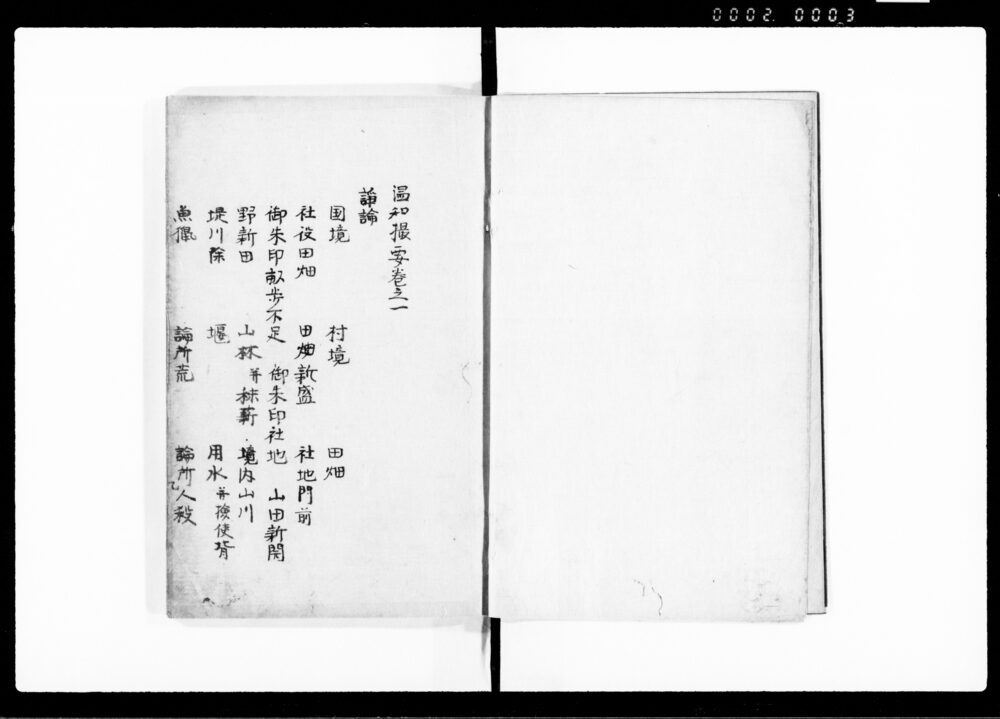 0002 0003
温知撮要巻之一
諍論
国境 村境 田畑
社役田畑 田畑新盛 社地門前
御朱印畝歩不足 御朱印社地 山田新開
野新田 山林并秣薪 境内山川
堤川除 堰 用水并検使背
魚猟 論所荒 論所乙人殺